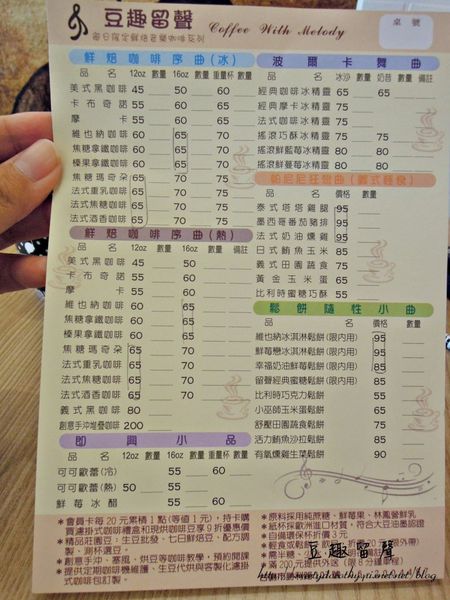 豆趣留聲
Coffee With Melody
桌號
鮮焙咖啡序曲(冰)
品名 12oz 數量 16oz 數量 重量杯 數量
美式黑咖啡 45 50 60
卡布奇諾 55 60 65
摩卡 55 60 65
維也納咖啡 60 65 70
焦糖拿鐵咖啡 60 65 70
榛果拿鐵咖啡 60 65 70
焦糖瑪奇朵 65 70 75
法式重乳咖啡 65 70
法式焦糖咖啡 65 70
法式酒香咖啡 65 70 75
鮮焙咖啡序曲(熱)
品名 12oz 數量 16oz 數量 備註
美式黑咖啡 45 50
卡布奇諾 55 60
摩卡 55 60
維也納咖啡 60 65
焦糖拿鐵咖啡 60 65
榛果拿鐵咖啡 60 65
焦糖瑪奇朵 65 70
法式重乳咖啡 65
法式焦糖咖啡 65
法式酒香咖啡 65 70
義式黑咖啡 80
創意手沖堆疊咖啡 200
即興小品
品名 12oz 數量 16oz 數量 重量杯 數量
可可歐蕾(冷) 55 60
可可歐蕾(熱) 50 55
鮮莓冰醋 55 60
波爾卡舞曲
品名 冰沙 數量 奶昔 數量 備註
經典咖啡冰精靈 65 65
經典摩卡冰精靈 75
法式咖啡冰精靈 75
搖滾巧酥冰精靈 75 75
搖滾鮮藍莓冰精靈 80 80
搖滾鮮蔓莓冰精靈 80 80
帕尼尼狂想曲(義式輕食)
品名 價格 數量
泰式塔塔雞腿 95
墨西哥番茄豬排 95
法式奶油燻雞 95
日式鮪魚玉米 85
義式田園蔬食 75
黃金玉米蛋 65
比利時蜜糖巧酥 55
鬆餅隨性小曲
品名 價格 數量
維也納冰淇淋鬆餅(限內用) 95
鮮莓戀冰淇淋鬆餅(限內用) 95
幸福奶油鮮莓鬆餅(限內用) 85
留聲經典蜜糖鬆餅(限內用) 85
比利時巧克力鬆餅 55
小巫師玉米蛋鬆餅 65
舒壓田園蔬食鬆餅 75
活力鮪魚沙拉鬆餅 85
有氧燻雞生菜鬆餅 90
*會員卡每20元累積1點(等值1元),持卡購買濾掛式咖啡禮盒和現烘咖啡豆享9折優惠價
*精品莊園豆:生豆批發、七日鮮焙豆、配方調製、測杯選豆。
*創意手沖、塞風、烘豆等咖啡教學,預約開課
*提供定期咖啡機維護、生豆代烘與客製化濾掛式咖啡包訂製。
*原料採用純蔗糖、鮮莓果、林鳳營鮮乳
*紙杯採歐洲進口材質,符合大豆油墨認證
*自備環保杯折價3元
豆趣留聲